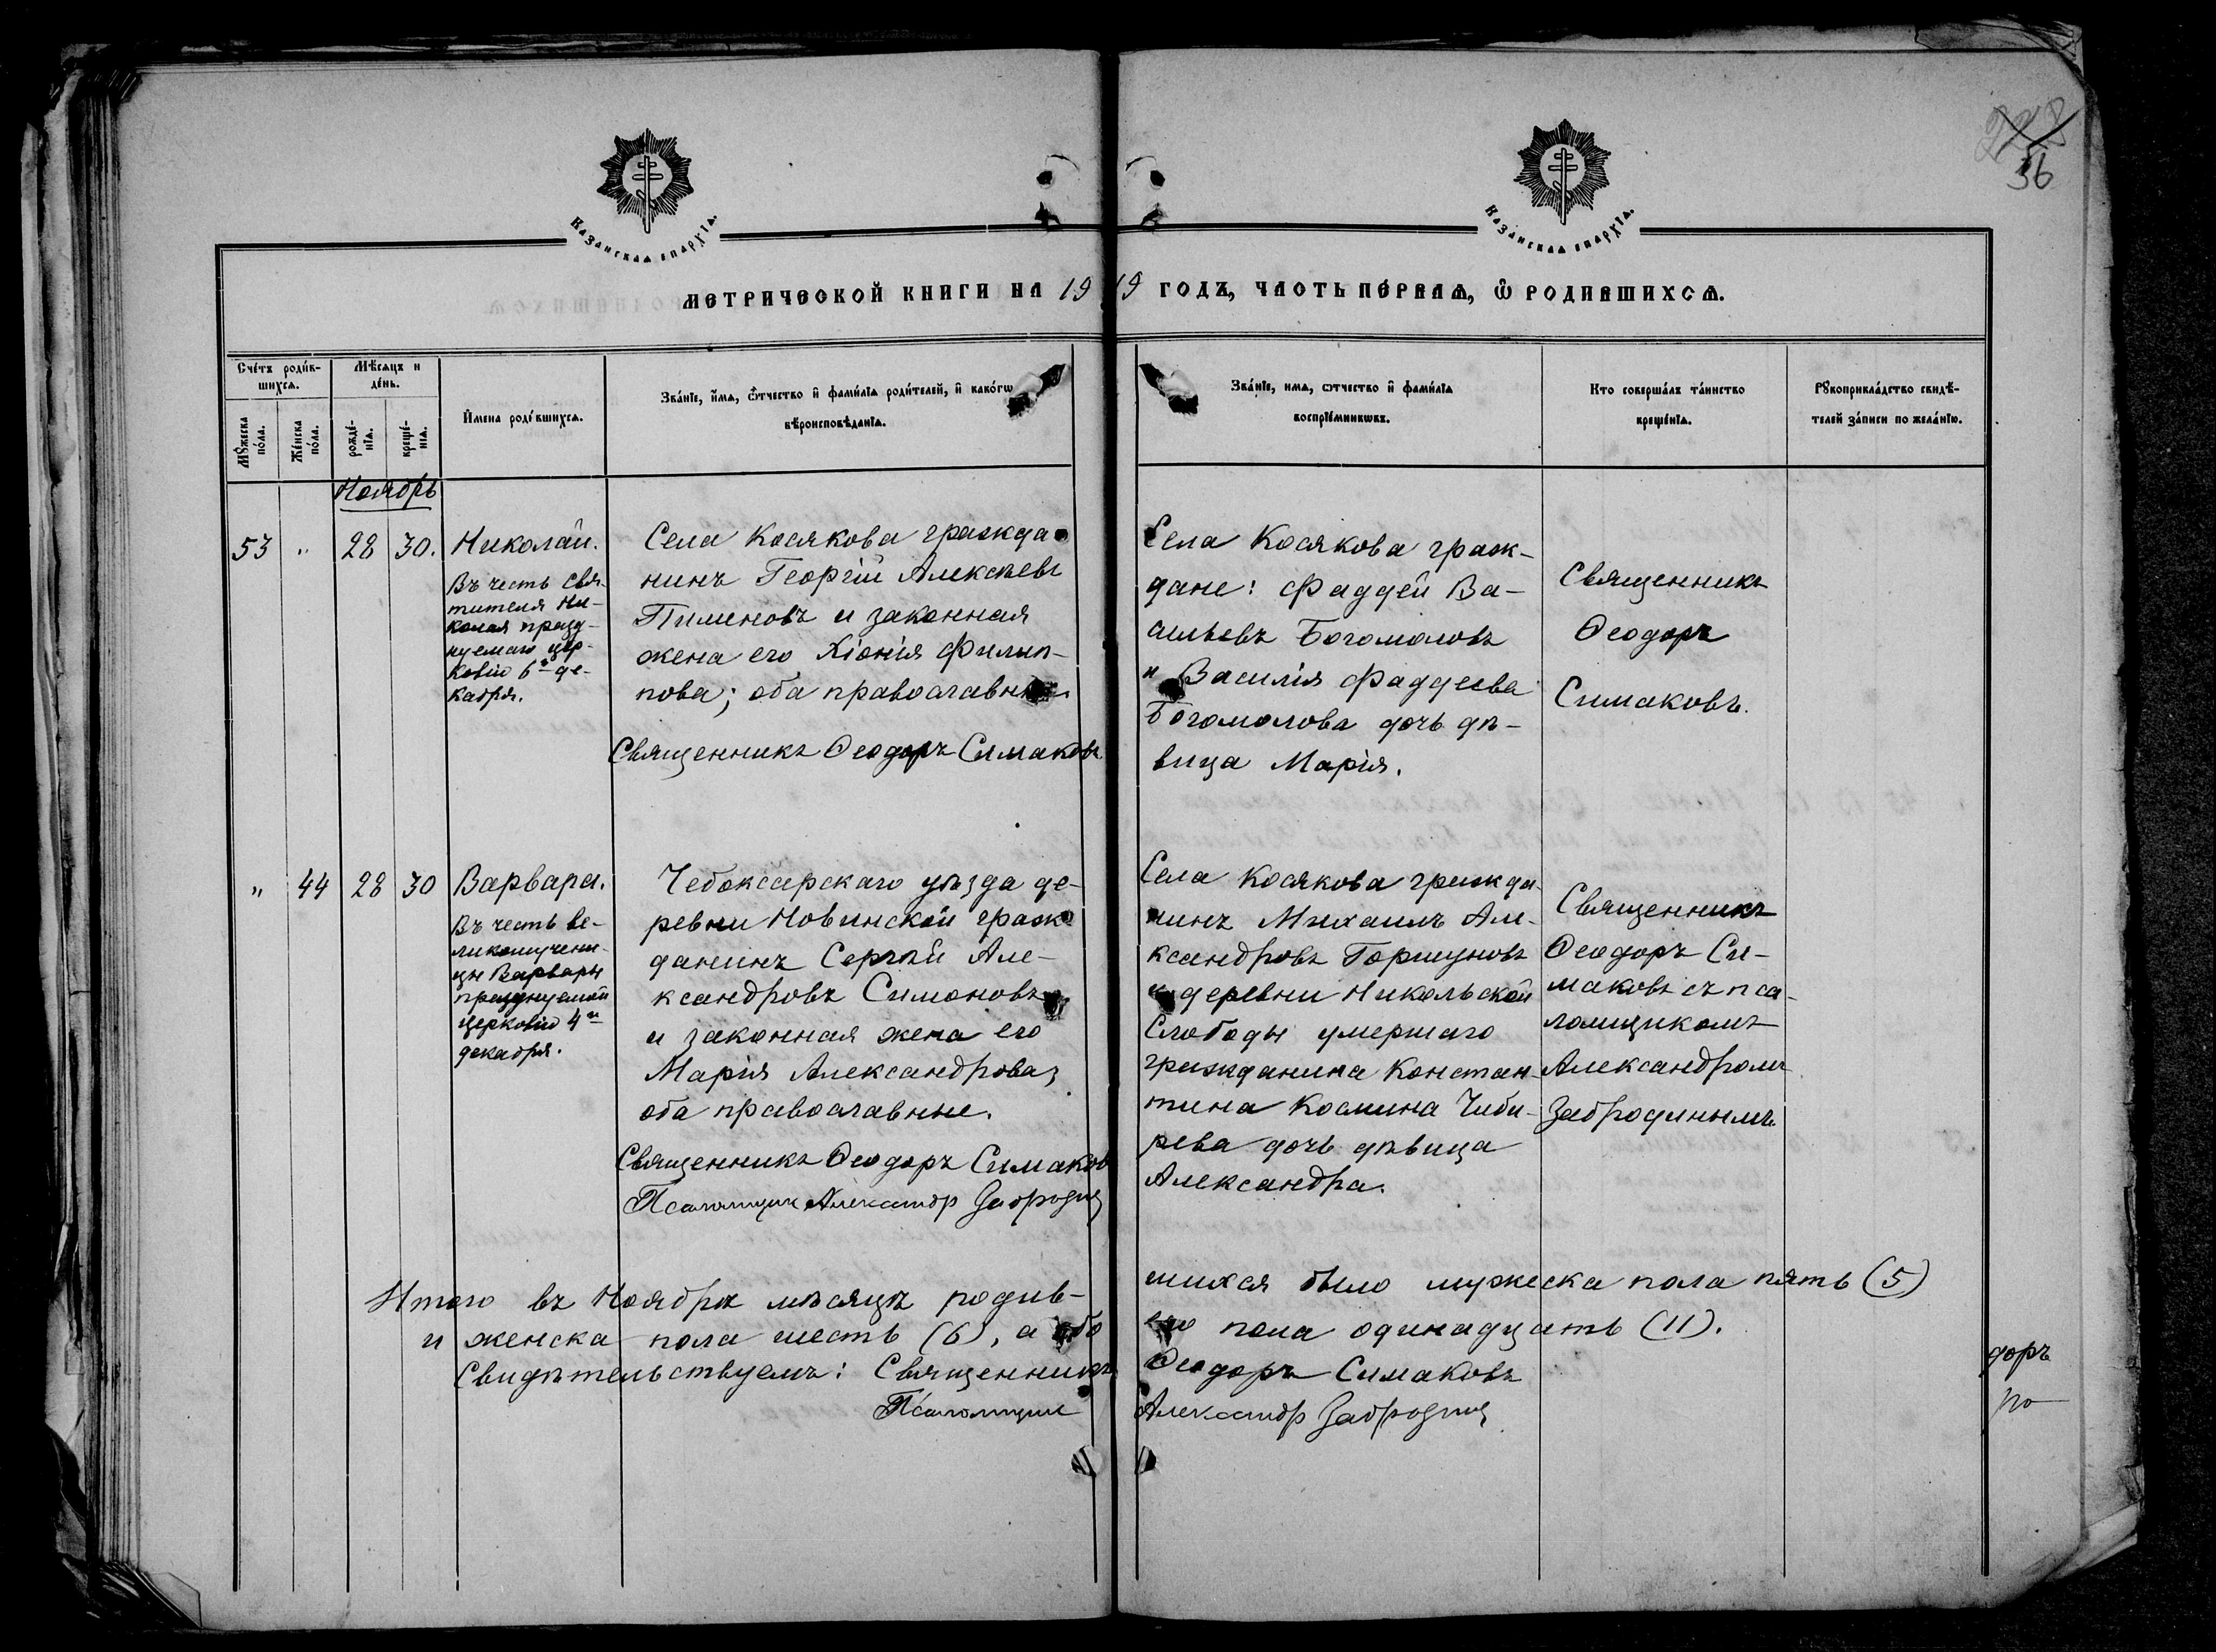 228
36
Казанская епархїѧ.
Казанская епархїѧ.
МЕТРИЧЕСКОЙ КНИГИ НА 1919 ГОДЪ, ЧАСТЬ ПЕ́РВАѦ, Ѡ҆ РОДИВШИХСѦ.
Сче́тъ роди́в-
шихсѧ.
Мѣ́сѧцъ и
де́нь.
Мꙋ́жеска
по́ла.
Же́нска
по́ла.
рожде́-
нїѧ.
креще́-
нїѧ.
И҆мена роди́вшихсѧ.
Зва́нїе, и҆́мѧ, ѻ҆́тчество и҆ фами́лїѧ роди́телей, и҆ како́гѡ
вѣроисповѣ́данїѧ.
Зва́нїе, имѧ, ѻтчество и҆ фами́лїѧ
воспрїе́мникѡвъ.
Кто соверша́лъ та́инство
креще́нїѧ.
Рꙋкоприкла́дство свидѣ́-
телей за́писи по жела́нїю.
Ноябрь
53 " 28 30. Николай.
Въ честь свя-
тителя Ни-
колая празд-
нуемаго цер-
ковію 6го де-
кабря.
Села Косякова гражда
нинъ Георгій Алексѣевъ
Пименовъ и законная
жена его Хіонія Филип-
пова; оба православные
Священникъ Ѳеодоръ Симаковъ
Села Косякова граж-
дане: Фаддей Ва-
сильевъ Богомоловъ
и Василія Фаддеева
Богомолова дочь дѣ-
вица Марія.
Священникъ
Ѳеодоръ
Симаковъ.
" 44 28 30 Варвара.
Въ честь ве-
ликомучени-
цы Варвары
празднуемой
церковію 4го
декабря.
Чебоксарскаго уѣзда де-
ревни Новинской граж-
данинъ Сергѣй Але-
ксандровъ Симоновъ
и законная жена его
Марія Александрова,
оба православные.
Священникъ Ѳеодоръ Симаков
Псаломщик Александр Забродин
Села Косякова гражда-
нинъ Михаилъ Але-
ксандровъ Горшуновъ
и деревни Никольской
Слободы умершаго
гражданина Констан-
тина Космина Чиби-
рева дочь дѣвица
Александра.
Священникъ
Ѳеодоръ Си-
маковъ съ пса-
ломщикомъ
Александромъ
Забродинымъ.
Итого въ Ноябрѣ мѣсяцѣ родив-
шихся было мужеска пола пять (5)
и женска пола шесть (6), а обо
его пола одинадцать (11).
Свидѣтельствуемъ: Священникъ
Ѳеодоръ Симаковъ
Псаломщик
Александр Забродин
доръ
ро